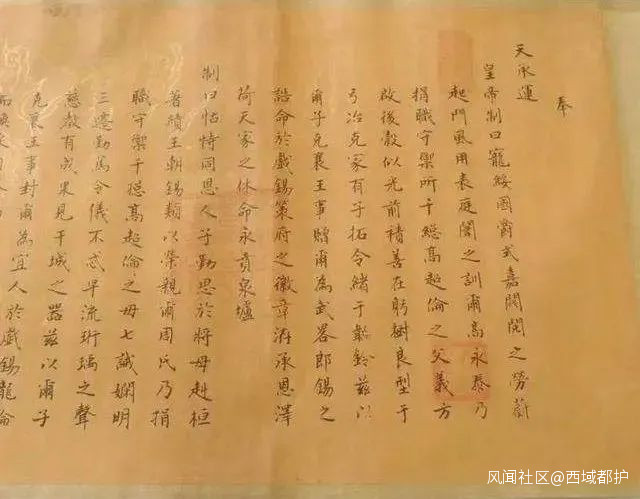 奉
天承運
皇帝制曰寵綏國爵式嘉閥閱之勞蔚
起門風用表庭闈之訓爾高永泰乃
捐職守禦所千總高超倫之父義方
啟後穀似光前積善在躬樹良型于
弓冶克家有子拓令緒于韜鈐茲以
爾子克襄王事贈爾為武畧郎錫之
誥命於戲錫策府之徽章洊承恩澤
荷天家之休命永賁泉壚
制曰怙恃同恩人子勤思於將母赳桓
著績王朝錫類以榮親爾周氏乃捐
職守禦千總高超倫之母七誡嫻明
三遷勤篤令儀不忒早流珩瑀之聲
慈教有成果見干城之器茲以爾子
克襄王事封爾為宜人於戲錫龍綸
风闻社区@西域都护